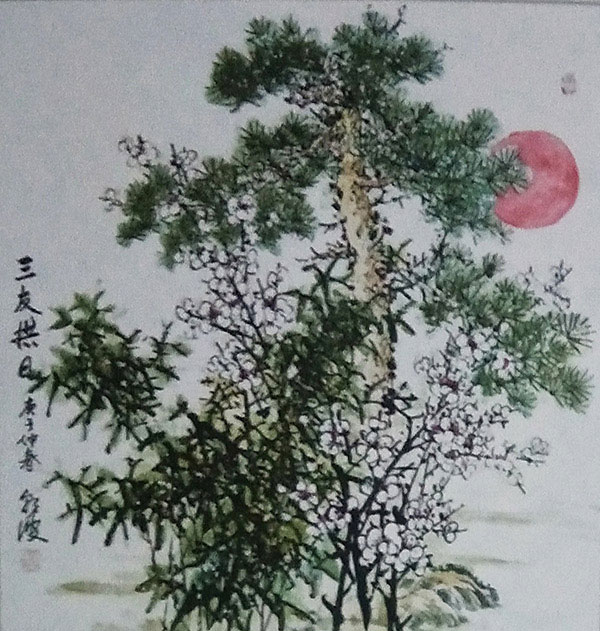 三友拱日
庚子仲春 波